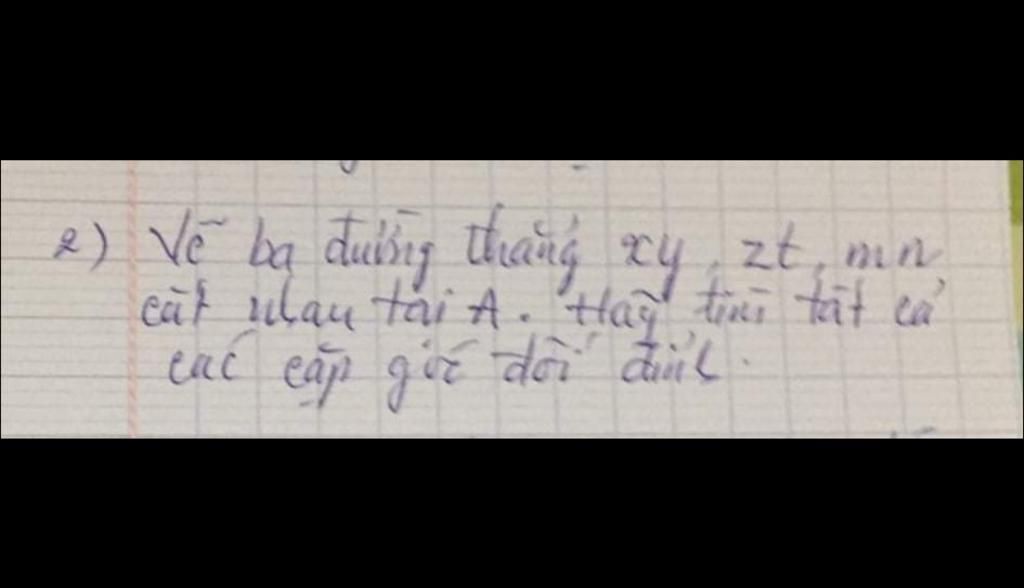 2) Vẽ ba đường thẳng xy, zt, mn
cắt nhau tại A. Hãy tìm tất cả
các cặp góc đối đỉnh.